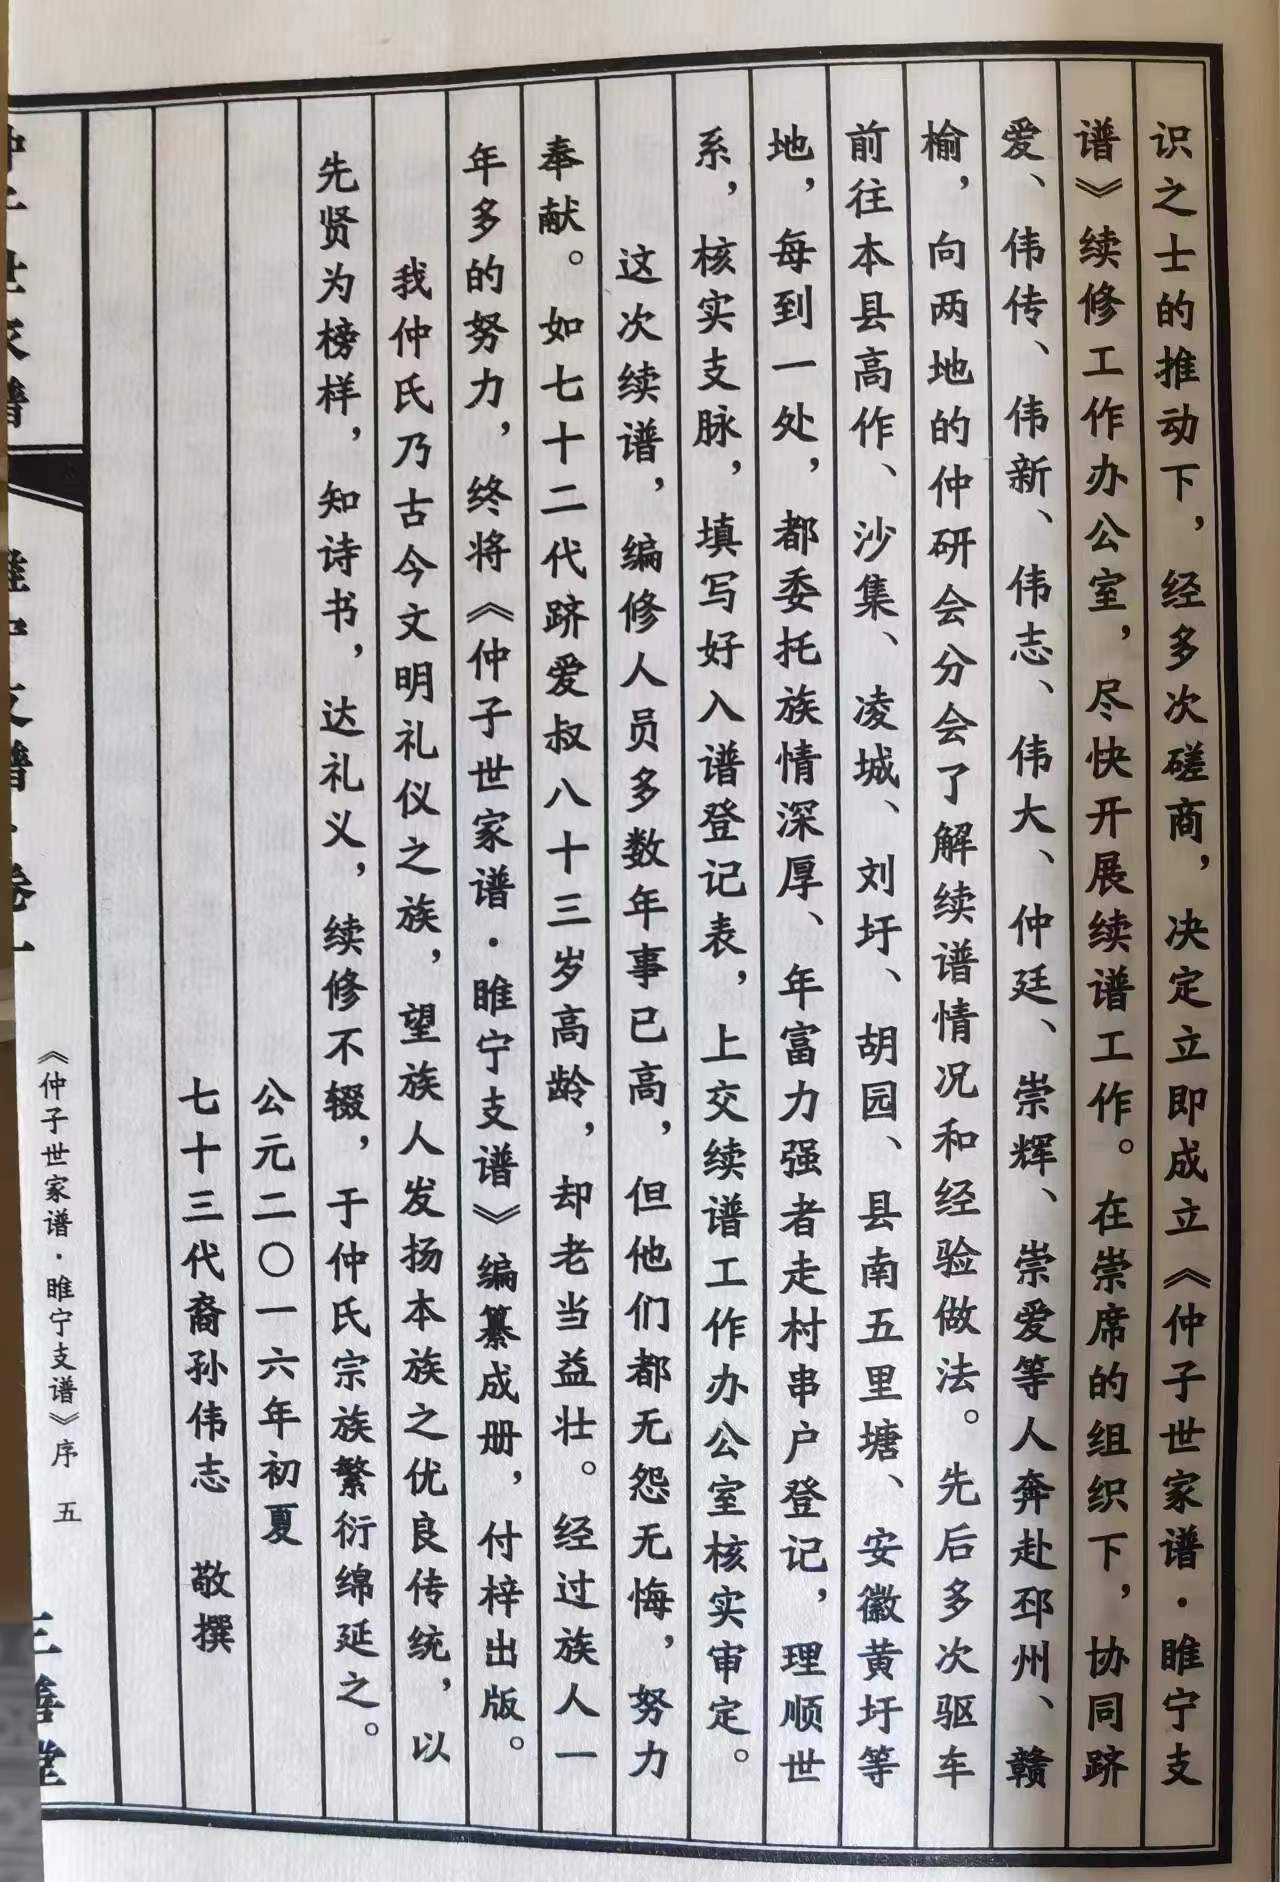 识之士的推动下，经多次磋商，决定立即成立《仲子世家谱·睢宁支
谱》续修工作办公室，尽快开展续谱工作。在崇席的组织下，协同跻
爱、伟传、伟新、伟志、伟大、仲廷、崇辉、崇爱等人奔赴邳州、赣
榆，向两地的仲研会分会了解续谱情况和经验做法。先后多次驱车
前往本县高作、沙集、凌城、刘圩、胡园、县南五里塘、安徽黄圩等
地，每到一处，都委托族情深厚、年富力强者走村串户登记，理顺世
系，核实支脉，填写好入谱登记表，上交续谱工作办公室核实审定。
这次续谱，编修人员多数年事已高，但他们都无怨无悔，努力
奉献。如七十二代跻爱叔八十三岁高龄，却老当益壮。经过族人一
年多的努力，终将《仲子世家谱·睢宁支谱》编纂成册，付梓出版。
我仲氏乃古今文明礼仪之族，望族人发扬本族之优良传统，以
先贤为榜样，知诗书，达礼义，续修不辍，于仲氏宗族繁衍绵延之。
公元二〇一六年初夏
七十三代裔孙伟志 敬撰
仲子世家谱 睢宁支谱·卷一
《仲子世家谱·睢宁支谱》序 五
三善堂